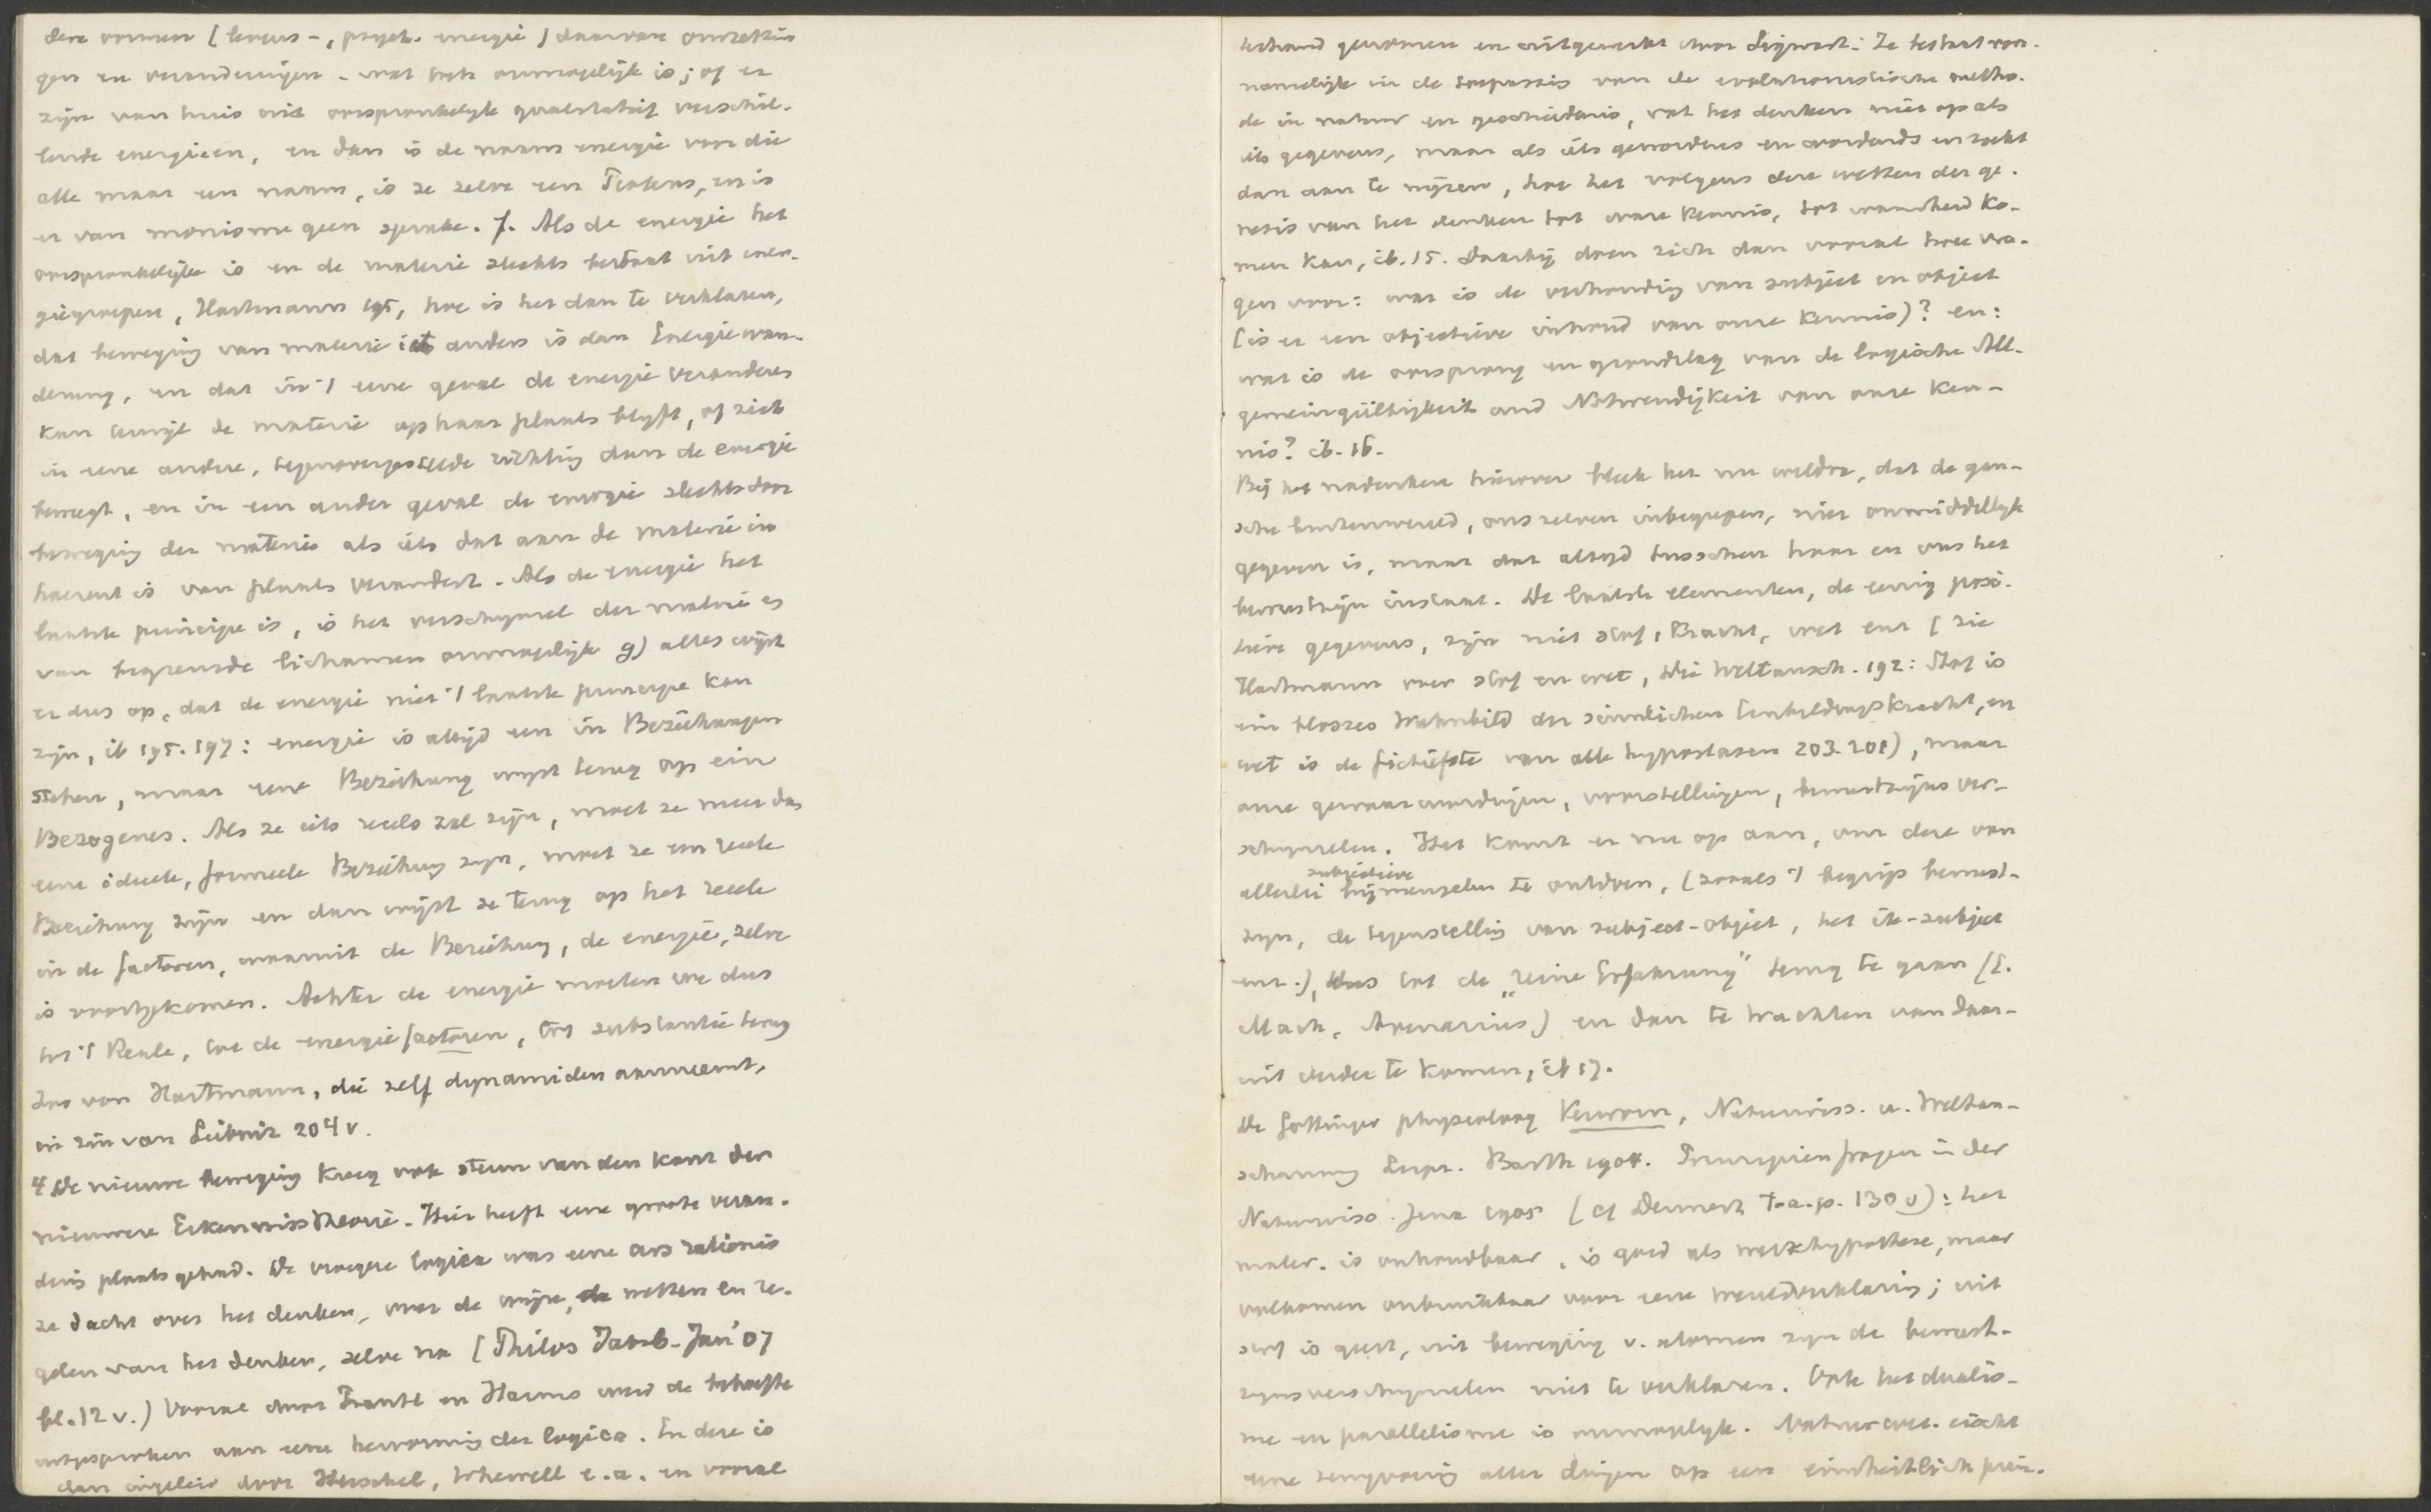 deze vormen (levens-, psych. energie) daarvan omzettin
gen en veranderingen - wat toch onmogelijk is; of er
zijn van huis uit oorspronkelijk qualitatief verschil-
lende energieen, en dan is de naam energie voor die
alle maar een naam, is ze zelve een en is
er van monisme geen sprake. f. Als de energie het
oorspronkelijke is en de materie slechts bestaat uit ener-
giegroepen, Hartmann 195, hoe is het dan te verklaren,
dat beweging van materie iets anders is dan Energiewan-
derung, en dat in 't eene geval de energie veranderen
kan terwijl de materie op haar plaats blijft, of zich
in eene andere, tegenovergestelde richting dan de energie
beweegt, en in een ander geval de energie slechts door
beweging der materie als iets dat aan de materie in
haerent is van plaats verandert. Als de energie het
laatste principe is, is het verschijnsel der materie en
van begrensde lichamen onmogelijk g) alles wijst
er dus op, dat de energie niet 't laatste principe kan
zijn, ib 195. 197: energie is altijd een in Beziehungen
stehen, maar eene Beziehung wijst terug op ein
Bezogenes. Als ze iets reëels zal zijn, moet ze meer dan
eene ideele, formeele Beziehung zijn, moet ze een reëele
Beziehung zijn en dan wijst ze terug op het reëele
in de factoren, waaruit de Beziehung, de energie, zelve
is voortgekomen. Achter de energie moeten we dus
tot 't Reale, tot de energiefactoren, tot substantie terug
Zoo von Hartmann, die zelf dynamiden aanneemt,
in zin van Leibniz 204 v.
4 De nieuwe beweging kreeg ook steun van den kant der
nieuwere Erkenntnisstheorie. Hier heeft eene groote veran-
dering plaats gehad. De vroegere logica was eene ars rationis
ze dacht over het denken, over de wijze, de wetten en re-
gelen van het denken, zelve na (Philos Jahrb. Jan '07
bl. 12 v.) Vooral door Prantl en Harms werd de behoefte
uitgesproken aan eene hervorming der logica. En deze is
dan ingeleid door Herschel, Whewell e.a. en vooral
terhand genomen en uitgewerkt door Sigwart. Ze bestaat voor-
namelijk in de toepassing van de evolutionistische metho-
de in natuur en geschiedenis, vat het denken niet op als
iets gegevens, maar als iets gewordens en wordends en zoekt
dan aan te wijzen, hoe het volgens deze wetten der ge-
nesis van het denken tot ware kennis, tot waarheid ko-
men kan, ib. 15. Daarbij doen zich dan vooral twee vra-
gen voor: wat is de verhouding van subject en object
(is er een objectieve inhoud van onze kennis)? en:
wat is de oorsprong en grondslag van de logische All-
gemeingültigkeit und Notwendigkeit van onze ken-
nis? ib. 16.
Bij het nadenken hierover bleek het nu weldra, dat de gan-
sche buitenwereld, ons zelven inbegrepen, niet onmiddellijk
gegeven is, maar dat altijd tusschen haar en ons het
bewustzijn instaat. De laatste elementen, de eenig posi-
tieve gegevens, zijn niet stof, kracht, wet enz (zie
Hartmann over stof en wet, Die Weltansch. 192: Stof is
ein blosses Wahnbild der sinnlichen Einbildungskracht, en
wet is de fictiefste van alle hypostasen 203. 201), maar
onze gewaarwordingen, voorstellingen, bewustzijnsver-
schijnselen. Het komt er nu op aan, om deze van
allerlei subjectieve bijmengselen te ontdoen, (zooals 't begrip bewust-
zijn, de tegenstelling van subject-object, het ik-subject
enz.), dus tot de „reine Erfahrung" terug te gaan (E.
Mach, Avenarius) en dan te trachten van daar-
uit verder te komen, ib 17.
De Gottinger physioloog Verworn, Naturwiss. u. Weltan-
schauung Leipz. Barth 1904. Prinzipienfragen in der
Naturwiss. Jena 1905 (cf Dennert t.a.p. 130 v): het
mater. is onhoudbaar, is goed als werkhypothese, maar
volkomen onbruikbaar voor eene wereldverklaring; uit
stof is geest, uit beweging v. atomen zijn de bewust-
zijnsverschijnselen niet te verklaren. Ook het dualis-
me en parallelisme is onmogelijk. Natuurwet. eischt
eene terugvoering aller dingen op een einheitlich prin-